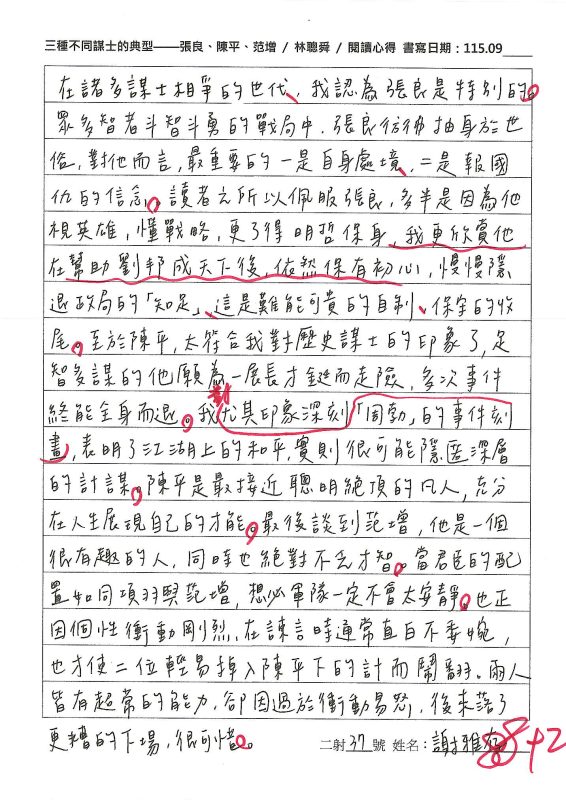 三種不同謀士的典型——張良、陳平、范增 / 林聰舜 / 閱讀心得 書寫日期：115.09
在諸多謀士相爭的世代、我認為張良是特別的。
眾多智者斗智斗勇的戰局中，張良彷彿抽身於世
俗，對他而言，最重要的一是自身處境、二是報國
仇的信念。讀者之所以佩服張良，多半是因為他
視英雄，懂戰略，更了得明哲保身，我更欣賞他
在幫助劉邦成天下後，依然保有初心，慢慢隱
退政局的「知足」、這是難能可貴的自制、保守的收
尾。至於陳平，太符合我對歷史謀士的印象了，足
智多謀的他願為一展長才鋌而走險，多次事件
對
終能全身而退。我尤其印象深刻「周勃」的事件刻
畫，表明了江湖上的和平，實則很可能隱匿深層
的計謀。陳平是最接近聰明絕頂的凡人，充分
在人生展現自己的才能。最後談到范增，他是一個
很有趣的人，同時也絕對不乏才智。當君臣的配
置如同項羽與范增，想必軍隊一定不會太安靜。也正
因個性衝動剛烈，在諫言時通常直白不委婉，
也才使二位輕易掉入陳平下的計而鬧翻。兩人
皆有超常的能力，卻因過於衝動易怒，後來落了
更糟的下場，很可惜。
二射37號 姓名：謝雅
88+2